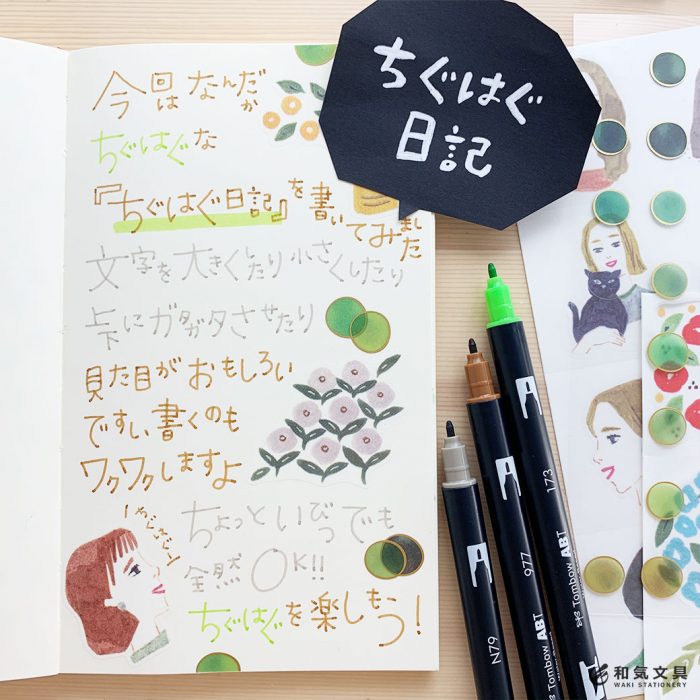 ちぐはぐ
日記
今回はなんだか
ちぐはぐな
『ちぐはぐ日記』を書いてみました
文字を大きくしたり小さくしたり
上下にガタガタさせたり
見た目がおもしろい
ですし書くのも
ワクワクしますよ
ちょっといびつでも
全然OK!!
ちぐはぐを楽しもう!
N79
977
Tombow ABT
173
Tombow ABT
和気文具
WAKI STATIONERY